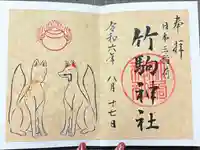 奉拝
日本三稲荷
竹駒神社
令和六年八月十七日